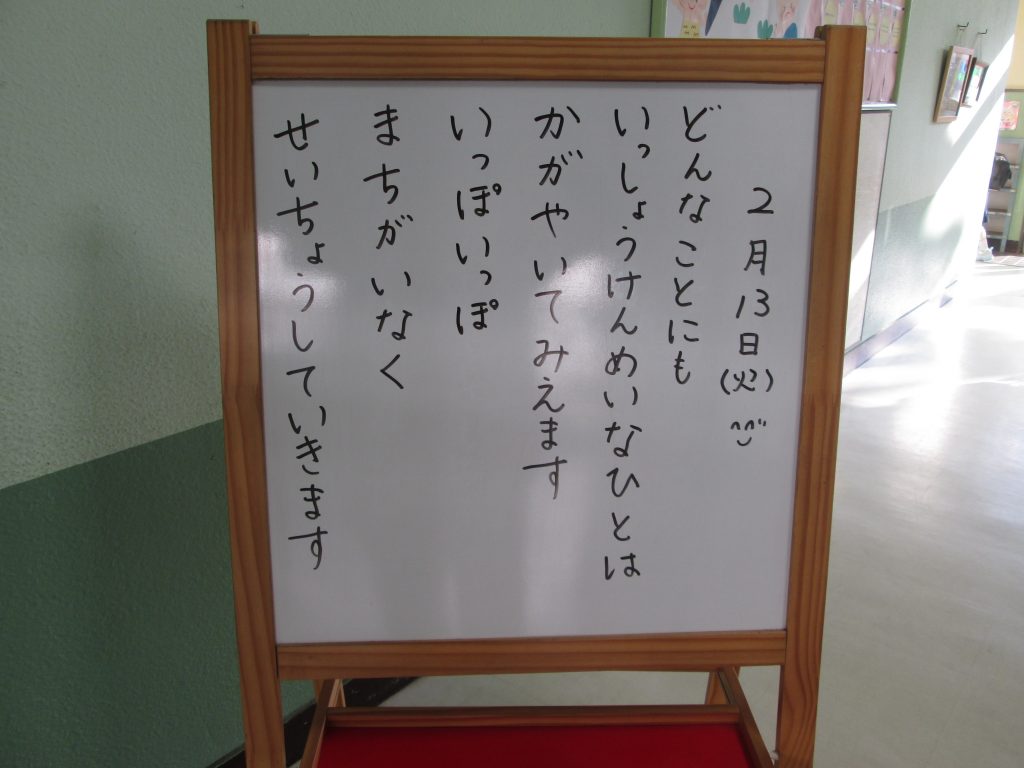 2月13日(火)
どんなことにも
いっしょうけんめいなひとは
かがやいてみえます
いっぽいっぽ
まちがいなく
せいちょうしていきます